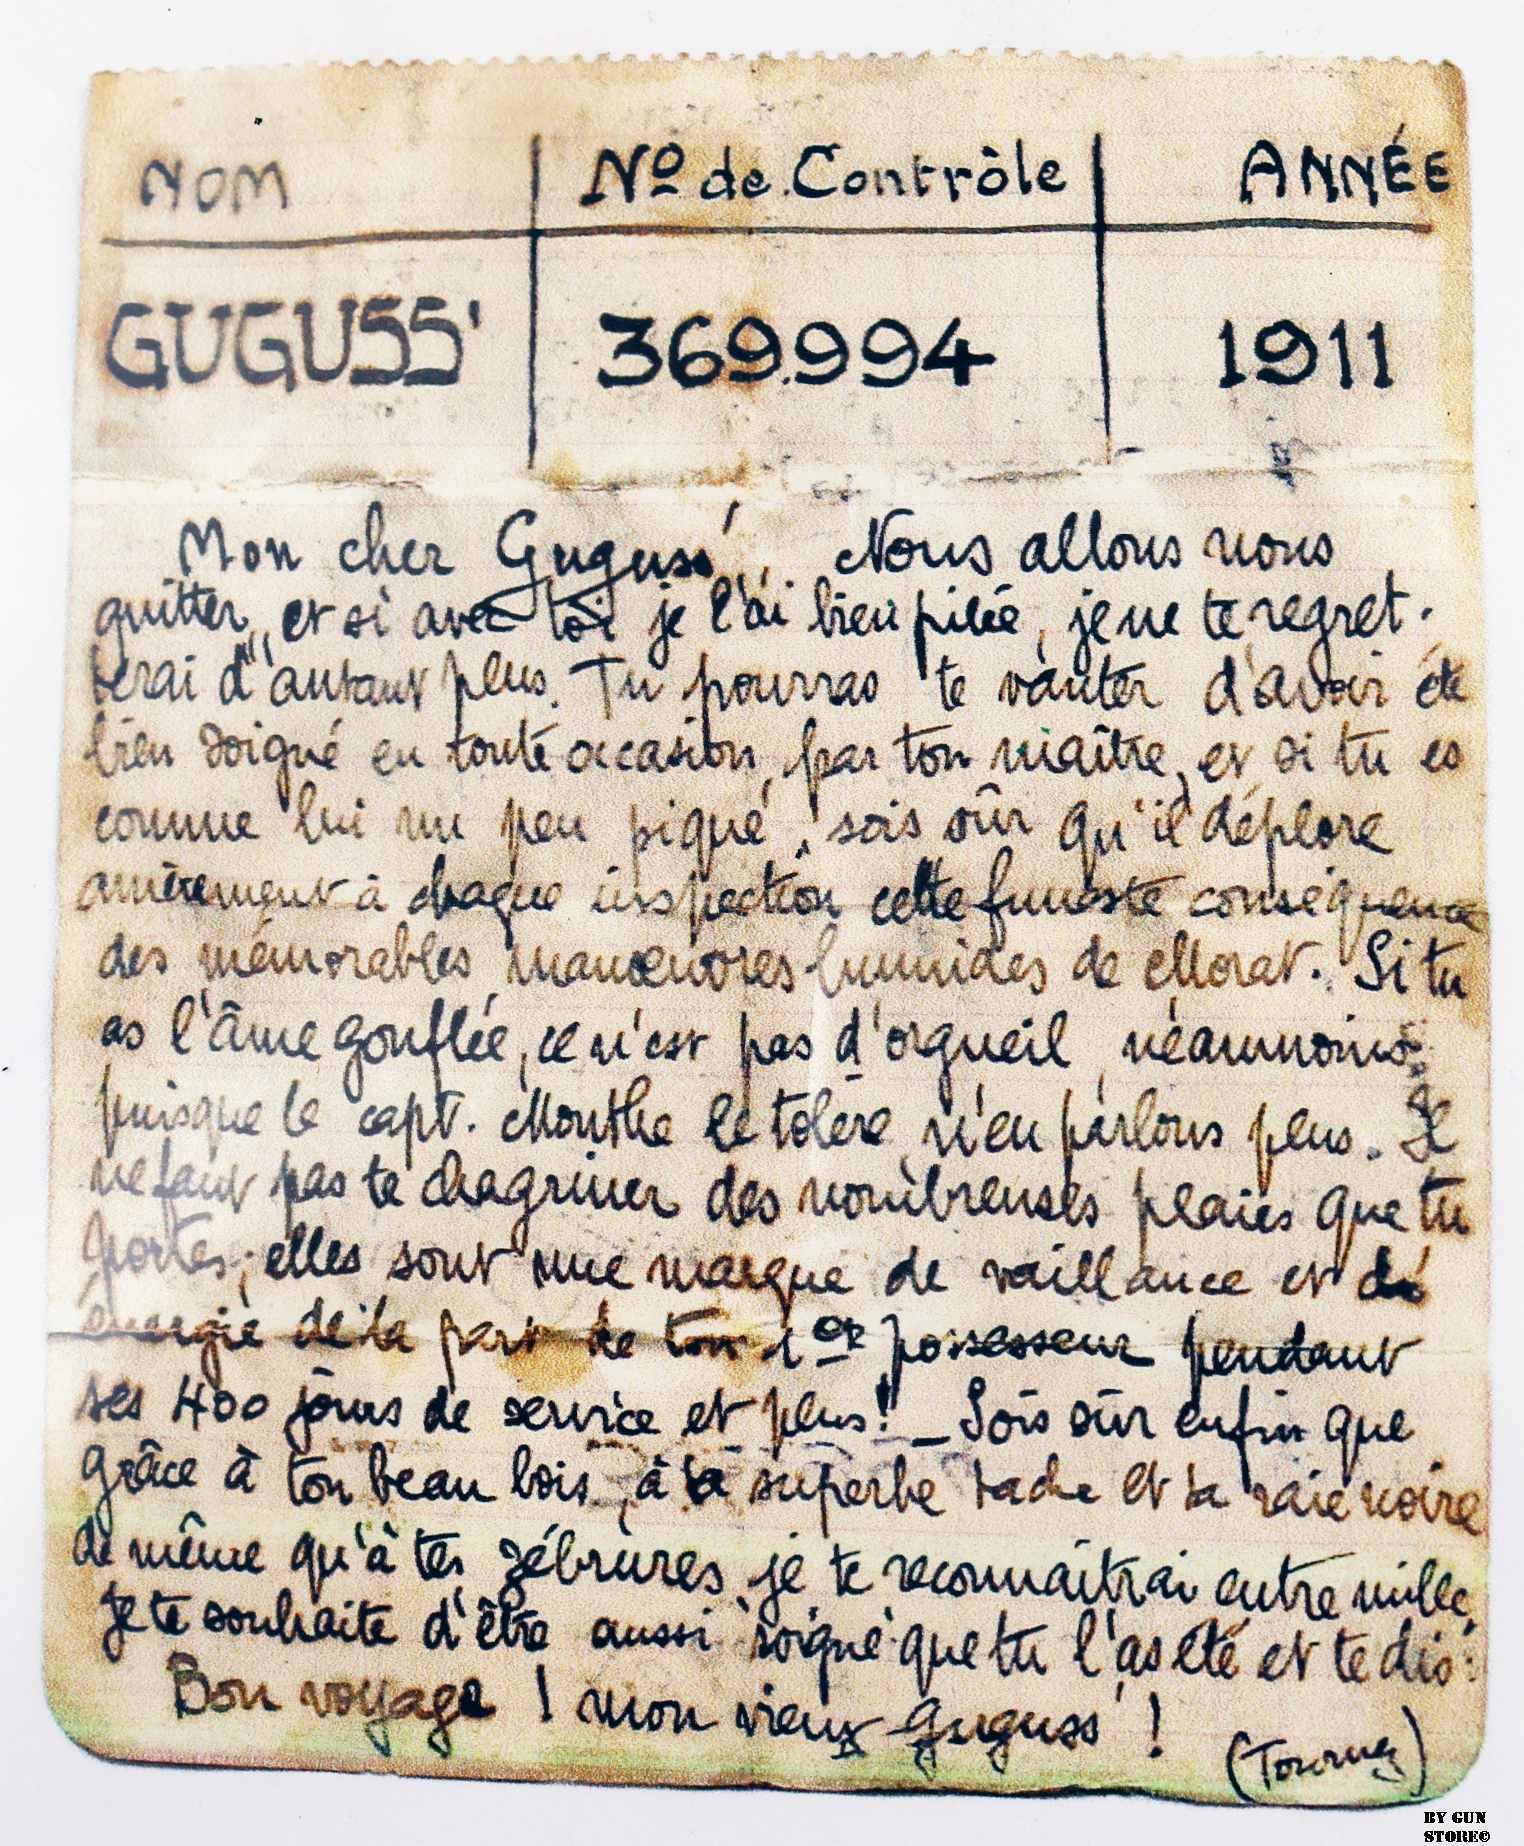 NOM | No de Contrôle | ANNÉE
GUGUSS' | 369.994 | 1911
Mon cher Guguss', Nous allons nous
quitter, et si avec toi je l'ai bien pilée, je ne te regret-
terai d'autant plus. Tu pourras te vanter d'avoir été
bien soigné en toute occasion, par ton maître, et si tu es
comme lui un peu piqué, sois sûr qu'il déplore
amèrement à chaque inspection cette funeste conséquence
des mémorables manœuvres humides de Morat. Si tu
as l'âme gonflée, ce n'est pas d'orgueil, néanmoins
puisque le capt. Monthe le tolère, n'en parlons plus. Il
ne faut pas te chagriner des nombreuses plaies que tu
portes; elles sont une marque de vaillance et d'
énergie de la part de ton 1er possesseur pendant
ses 400 jours de service et plus! _ Sois sûr enfin que
grâce à ton beau bois, à ta superbe tache et ta raie noire
de même qu'à tes zébrures, je te reconnaîtrai entre mille.
Je te souhaite d'être aussi soigné que tu l'as été et te dis:
Bon voyage ! mon vieux Guguss' !
(Tournez)
BY GUN
STORE©